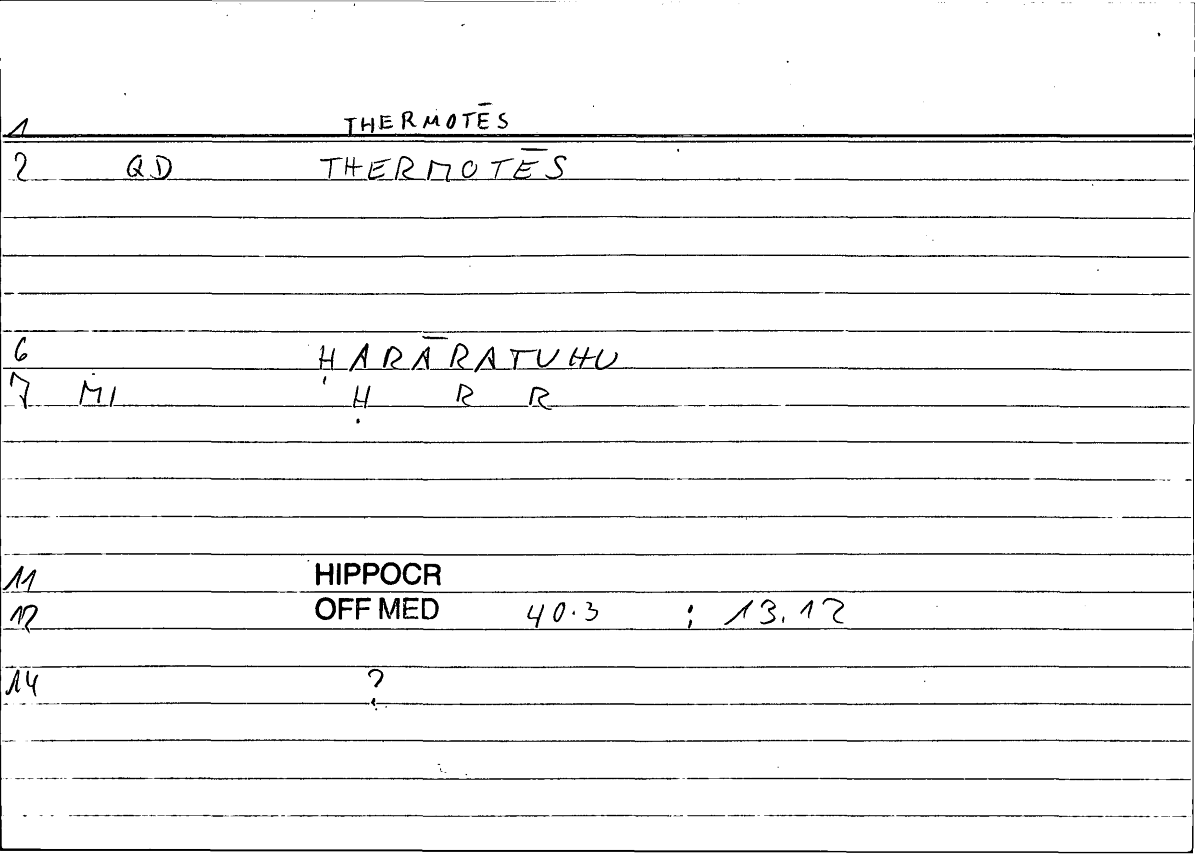 1 THERMOTĒS
2 QD THERMOTĒS
6 ḤARĀRATUHU
7 MI Ḥ R R
11 HIPPOCR
12 OFF MED 40.3 : 13.12
14 ?